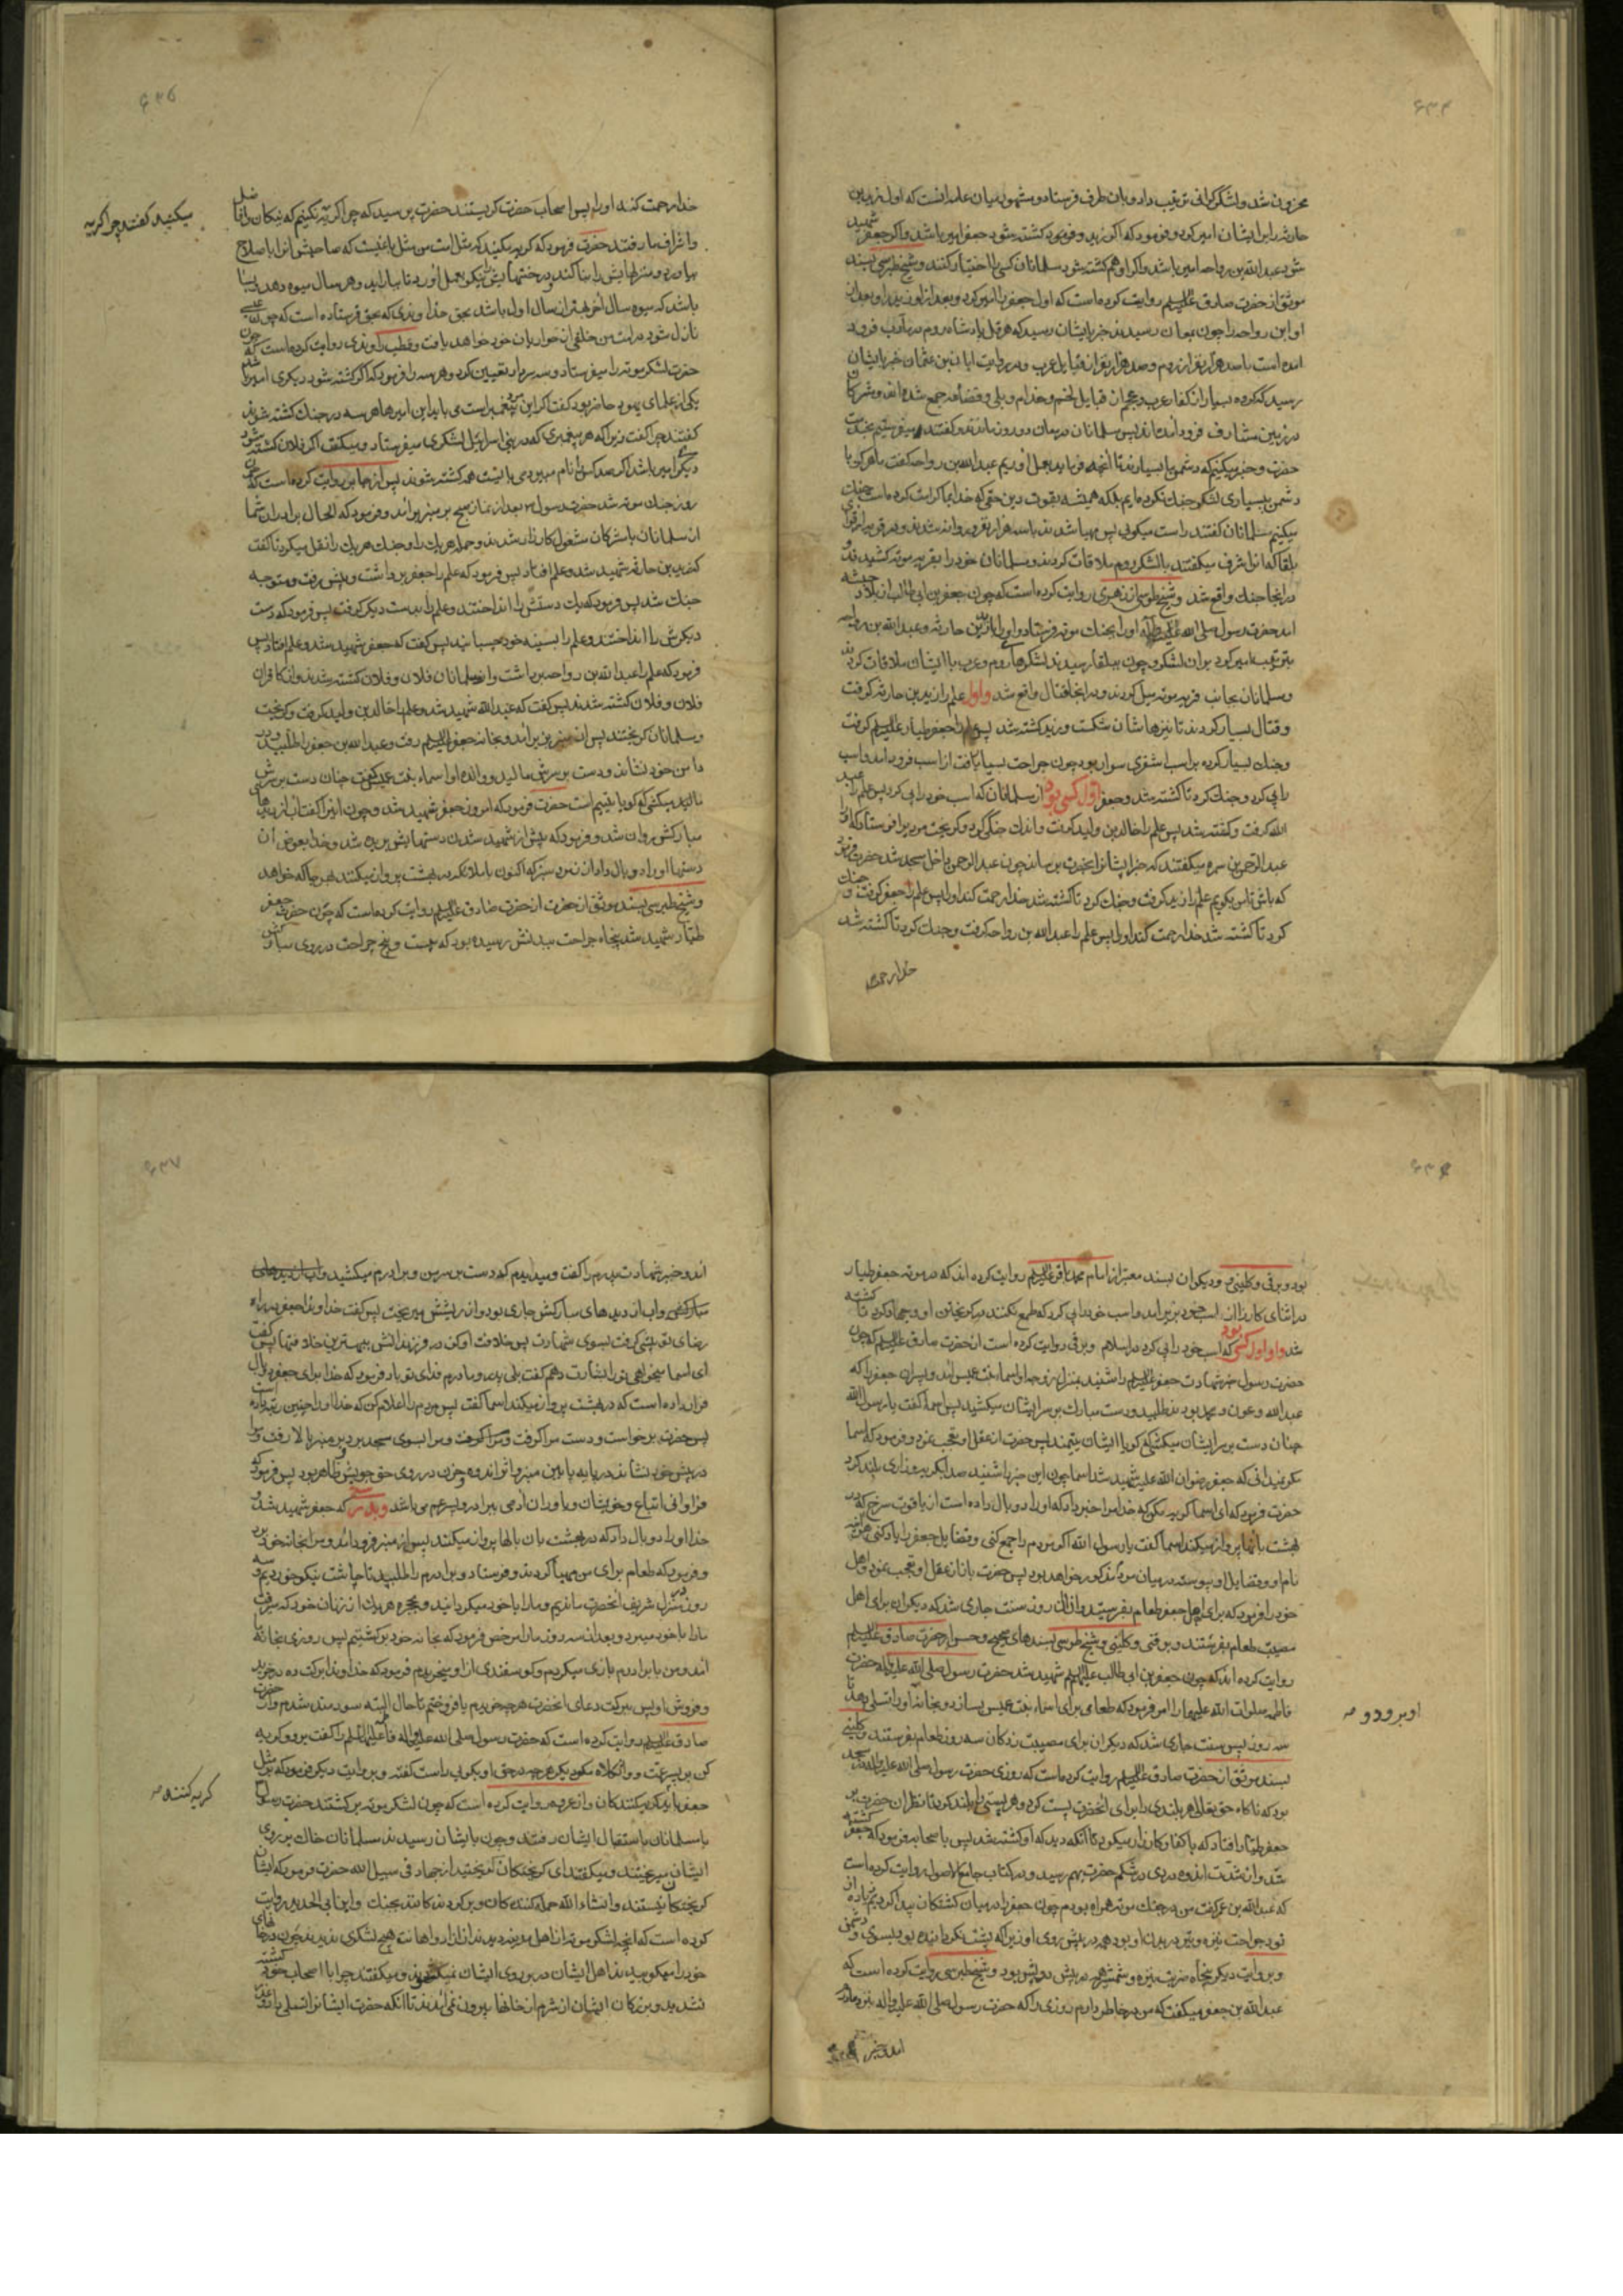 ۶۳۴
محزون شد و لشکر گرانی ترتیب داد و بان طرف فرستاد و مشهور میان علما انست که اول زید بن
حارثه را بر ایشان امیر کرد و فرمود که اگر زید کشته شود جعفر امیر باشد و اگر جعفر شهید
شود عبد الله بن رواحه امیر باشد و اگر او هم کشته شود مسلمانان کسی را اختیار کنند و شیخ طبرسی بسند
موثق از حضرت صادق علیه السلم روایت کرده است که اول جعفر را امیر کرد و بعد از او زید را و بعد از
او ابن رواحه را چون بمعان رسیدند خبر بایشان رسید که هرقل پادشاه روم در مآرب فرود
امده است با صد هزار نفر از روم و صد هزار نفر از قبایل عرب و بروایت ابان بن عثمان خبر بایشان
رسید که کرده بسیار از کفار عرب و عجم از قبایل لخم و حذام و بلی و قضاعه جمع شده اند و مشرکان
در زمین مشارف فرود امدند پس مسلمانان در معان دو روز ماندند و گفتند میفرستیم بخدمت
حضرت و خبر میکنیم که دشمن ما بسیارند تا انچه فرماید بعمل اوریم عبد الله بن رواحه گفت ما هرگز با
دشمن ببسیاری لشکر جنگ نکرده ایم بلکه همیشه بقوت دین حقی که خدا بما کرامت کرده است جنگ
میکنیم مسلمانان گفتند راست میگوئی پس مهیا شدند با سه هزار نفر و روانه شدند و در قریه از قرای
بلقا که انرا شرف میگفتند با لشکر روم ملاقات کردند و مسلمانان خود را بقریه موته کشیدند و
در انجا جنگ واقع شد و شیخ طوسی از زهری روایت کرده است که چون جعفر بن ابی طالب از بلاد حبشه
امد حضرت رسول صلی الله علیه و اله او را بجنگ موته فرستاد و او را با زید بن حارثه و عبد الله بن رواحه
بترتیب امیر کرد بر ان لشکر و چون ببلقا رسیدند لشکرهای روم و عرب با ایشان ملاقات کردند
و مسلمانان بجانب قریه موته میل کردند و در انجا قتال واقع شد و اول علم را زید بن حارثه گرفت
و قتال بسیار کردند تا نیزهاشان شکست و زید کشته شد پس علم را جعفر طیار علیه السلم گرفت
و جنگ بسیار کرد و بر اسب اشقری سوار بود چون جراحت بسیار یافت از اسب فرود امد و اسب
را پی کرد و جنگ کرد تا کشته شد و جعفر اول کسی بود از مسلمانان که اسب خود را پی کرد پس علم را عبد
الله گرفت و کشته شد پس علم را خالد بن ولید گرفت و اندک جنگی کرد و گریخت مردی را فرستاد که او را
عبد الرحمن بن سمره میگفتند که خبر ایشانرا بحضرت برساند چون عبد الرحمن داخل مسجد شد حضرت فرمود
که باش تا من بگویم علم را زید گرفت و جنگ کرد تا کشته شد خدا رحمت کند او را پس علم را جعفر گرفت و جنگ
کرد تا کشته شد خدا رحمت کند او را پس علم را عبد الله بن رواحه گرفت و جنگ کرد تا کشته شد
خدا رحمت
۶۳۵
خدا رحمت کند او را پس اصحاب حضرت گریستند حضرت پرسید که چرا گریه میکنید گفتند چرا گریه نکنیم که نیکان و افاضل
و اشراف ما رفتند حضرت فرمود که گریه مکنید که مثل امت من مثل باغیست که صاحبش انرا باصلاح
بیاورد و منزلهایش را بنا کند و درختهایش را نیکو بعمل اورد تا ببار اید و هر سال میوه دهد بسا
باشد که میوه سال اخر بهتر از سال اول باشد بحق خداوندی که بحق فرستاده است که چون عیسی
نازل شود در امت من خلفی از حواریان خود خواهد یافت و قطب راوندی روایت کرده است که چون
حضرت لشکر موته را میفرستاد و سه سردار تعیین کرد و هر سه را فرمود که اگر کشته شود دیگری امیر باشد
یکی از علمای یهود حاضر بود گفت اگر این مرد پیغمبر است می باید این امیرها هر سه در جنگ کشته شوند
گفتند چرا گفت زیرا که هر پیغمبری که در بنی اسرائیل لشکری میفرستاد و میگفت اگر فلان کشته شود
دیگری امیر باشد اگر صد کس را نام میبرد می بایست همه کشته شوند پس از جابر روایت کرده است که چون
روز جنگ موته شد حضرت رسول ص بعد از نماز صبح بر منبر بر امد و فرمود که الحال برادران شما
از مسلمانان با مشرکان مشغول کارزار شدند و حمله هر یک را و جنگ هر یک را نقل میکرد تا گفت
که زید بن حارثه شهید شد و علم افتاد پس فرمود که علم را جعفر برداشت و پیش رفت و متوجه
جنگ شد پس فرمود که یک دستش را انداختند و علم را بدست دیگر گرفت پس فرمود که دست
دیگرش را انداختند و علم را بسینه خود چسبانید پس گفت که جعفر شهید شد و علم افتاد پس
فرمود که علم را عبد الله بن رواحه برداشت و از مسلمانان فلان و فلان کشته شدند و از کافران
فلان و فلان کشته شدند پس گفت که عبد الله شهید شد و علم را خالد بن ولید گرفت و گریخت
و مسلمانان گریختند پس از منبر بزیر امد و بخانه جعفر علیه السلم رفت و عبد الله بن جعفر را طلبید و در
دامن خود نشاند و دست بر سرش مالید و والده او اسماء بنت عمیس گفت چنان دست بر سرش
مالیدید که گویا یتیم است حضرت فرمود که امروز جعفر شهید شد و چون اینرا گفت اب از دیدهای
مبارکش روان شد و فرمود که پیش از شهید شدن دستهایش بریده شد و خدا بعوض ان
دستها او را دو بال داد از زمرد سبز که اکنون با ملائکه در بهشت پرواز میکند بهر جا که خواهد
و شیخ طبرسی بسند موثق از حضرت صادق علیه السلم روایت کرده است که چون حضرت جعفر
طیار شهید شد پنجاه جراحت ببدنش رسیده بود که بیست و پنج جراحت در روی مبارکش
میکنید گفتند چرا گریه
۶۳۶
بود و برقی و کلینی و دیگران بسند معتبر از امام محمد باقر علیه السلم روایت کرده اند که در موته جعفر طیار
در اثنای کارزار از اسب خود بزیر امد و اسب خود را پی کرد که طمع نکنند در گریختن او و جهاد کرد تا کشته
شد و او اول کسی بود که اسب خود را پی کرد در اسلام و برقی روایت کرده است از حضرت صادق علیه السلم که چون
حضرت رسول خبر شهادت جعفر علیه السلم را شنید بمنزل زوجه او اسماء بنت عمیس امد و پسران جعفر را که
عبد الله و عون و محمد بودند طلبید و دست مبارک بر سر ایشان میکشید پس اسما گفت یا رسول الله
چنان دست بر سر ایشان میکشی که گویا ایشان یتیمند پس حضرت از عقل او تعجب نمود و فرمود که اسما
مگر نمیدانی که جعفر رضوان الله علیه شهید شد اسما چون این خبر را شنید صدا بگریه و زاری بلند کرد
حضرت فرمود که ای اسما گریه مکن که خدا مرا خبر داد که او را دو بال داده است از یاقوت سرخ که در
بهشت بانها پرواز میکند اسما گفت یا رسول الله اگر مردم را جمع کنی و فضایل جعفر را یاد کنی هراینه
نام او و فضایل او پیوسته در میان مردم مذکور خواهد بود پس حضرت باز از عقل او تعجب نمود و اهل
خود را فرمود که برای اهل جعفر طعام بفرستید و از ان روز سنت جاری شد که دیگران برای اهل
مصیبت طعام بفرستند و برقی و کلینی و شیخ طوسی بسندهای صحیح و حسن از حضرت صادق علیه السلم
روایت کرده اند که چون جعفر بن ابی طالب علیه السلم شهید شد حضرت رسول صلی الله علیه و اله حضرت
فاطمه صلوات الله علیها را امر فرمود که طعامی برای اسماء بنت عمیس بسازد و بخانه او برود و او را تسلی بدهد تا
سه روز پس سنت جاری شد که دیگران برای مصیبت زدگان سه روز طعام بفرستند و کلینی
بسند موثق از حضرت صادق علیه السلم روایت کرده است که روزی حضرت رسول صلی الله علیه و اله در مسجد
بود که ناگاه حق تعالی هر بلندی را برای انحضرت پست کرد و هر پستی را بلند کرد تا نظر ان حضرت بر
جعفر طیار افتاد که با کفار کارزار میکرد تا انکه دید که او کشته شد پس باصحابه فرمود که جعفر کشته
شد و از شدت اندوه دردی در شکم حضرت بهم رسید و در کتاب جامع الاصول روایت کرده است
که عبد الله بن عمر گفت من در جنگ موته همراه بودم چون جعفر را در میان کشتگان پیدا کردیم زیاده از
نود جراحت نیزه و تیر در بدن او بود همه در پیش روی او زیرا که پشت نگردانیده بود بسوی دشمن
و بروایت دیگر پنجاه ضربت نیزه و شمشیر همه در پیش روی او بود و شیخ طبرسی روایت کرده است که
عبد الله بن جعفر میگفت که من در خاطر دارم روزی را که حضرت رسول صلی الله علیه و اله بنزد مادرم
امد و خبر
او برود و
۶۳۷
امد و خبر شهادت پدرم را گفت و میدیدم که دست بر سر من و برادرم میکشید و اب از دیدهای
مبارکش و اب از دیدهای مبارکش جاری بود و از ریشش میریخت پس گفت خداوندا جعفر در راه
رضای تو پیشی گرفت بسوی شهادت پس خلافت او کن در فرزندانش ببهترین خلافتها پس گفت
ای اسما میخواهی ترا بشارت دهم گفت بلی پدر و مادرم فدای تو باد فرمود که خدا برای جعفر دو بال
قرار داده است که در بهشت پرواز میکند اسما گفت پس مردم را اعلام کن که خدا او را چنین رتبه داده است
پس حضرت برخواست و دست مرا گرفت و مرا بسوی مسجد برد و بر منبر بالا رفت و مرا
در پیش خود نشاند در پایه پایین منبر و اثر اندوه و حزن در روی حق جویش ظاهر بود پس فرمود که
فراوانی اتباع و خویشان و یاوران ادمی ببرادر و پسر عم می باشد و بدرستی که جعفر شهید شد و
خدا او را دو بال داد که در بهشت بان بالها پرواز میکند پس از منبر فرود امد و مرا بخانه خود برد
و فرمود که طعام برای من مهیا کردند و فرستاد و برادرم را طلبید تا چاشت نیکو خوردیم و سه
روز در منزل شریف انحضرت ماندیم و ما را با خود میگردانید و بحجره هر یک از زنان خود که میرفت
ما را با خود میبرد و بعد از سه روز ما را مرخص فرمود که بخانه خود برگشتیم پس روزی بخانه ما
امد و من با برادرم بازی میکردم و گوسفندی از او میخریدم فرمود که خداوندا برکت ده در خرید
و فروش او پس ببرکت دعای انحضرت هر چه خریدم یا فروختم تا حال البته سودمند شدم و از حضرت
صادق علیه السلم روایت کرده است که حضرت رسول صلی الله علیه و اله فاطمه علیها السلم را گفت برو و گریه
کن بر پسر عمت و واثکلاه مگو دیگر هر چه در حق او بگوئی راست گفته و بروایت دیگر فرمود که بر مثل
جعفر باید گریه کنند گریه کنندگان و از عروه روایت کرده است که چون لشکر موته برگشتند حضرت رسول ص
با مسلمانان باستقبال ایشان رفتند و چون بایشان رسیدند مسلمانان خاک بر روی
ایشان میریختند و میگفتند ای گریختگان گریختید از جهاد فی سبیل الله حضرت فرمود که ایشان
گریختگان نیستند و انشاء الله حمله کنندگان و برگردندگانند بجنگ و ابن ابی الحدید روایت
کرده است که انچه لشکر موته از اهل مدینه دیدند از ازارها هیچ لشکری ندیدند چون در خانهای
خود را میکوبیدند اهل ایشان در بر روی ایشان نمیگشودند و میگفتند چرا با اصحاب خود کشته
نشدید و بزرگان ایشان از شرم از خانها بیرون نمی امدند تا انکه حضرت ایشانرا تسلی داد
گریه کننده